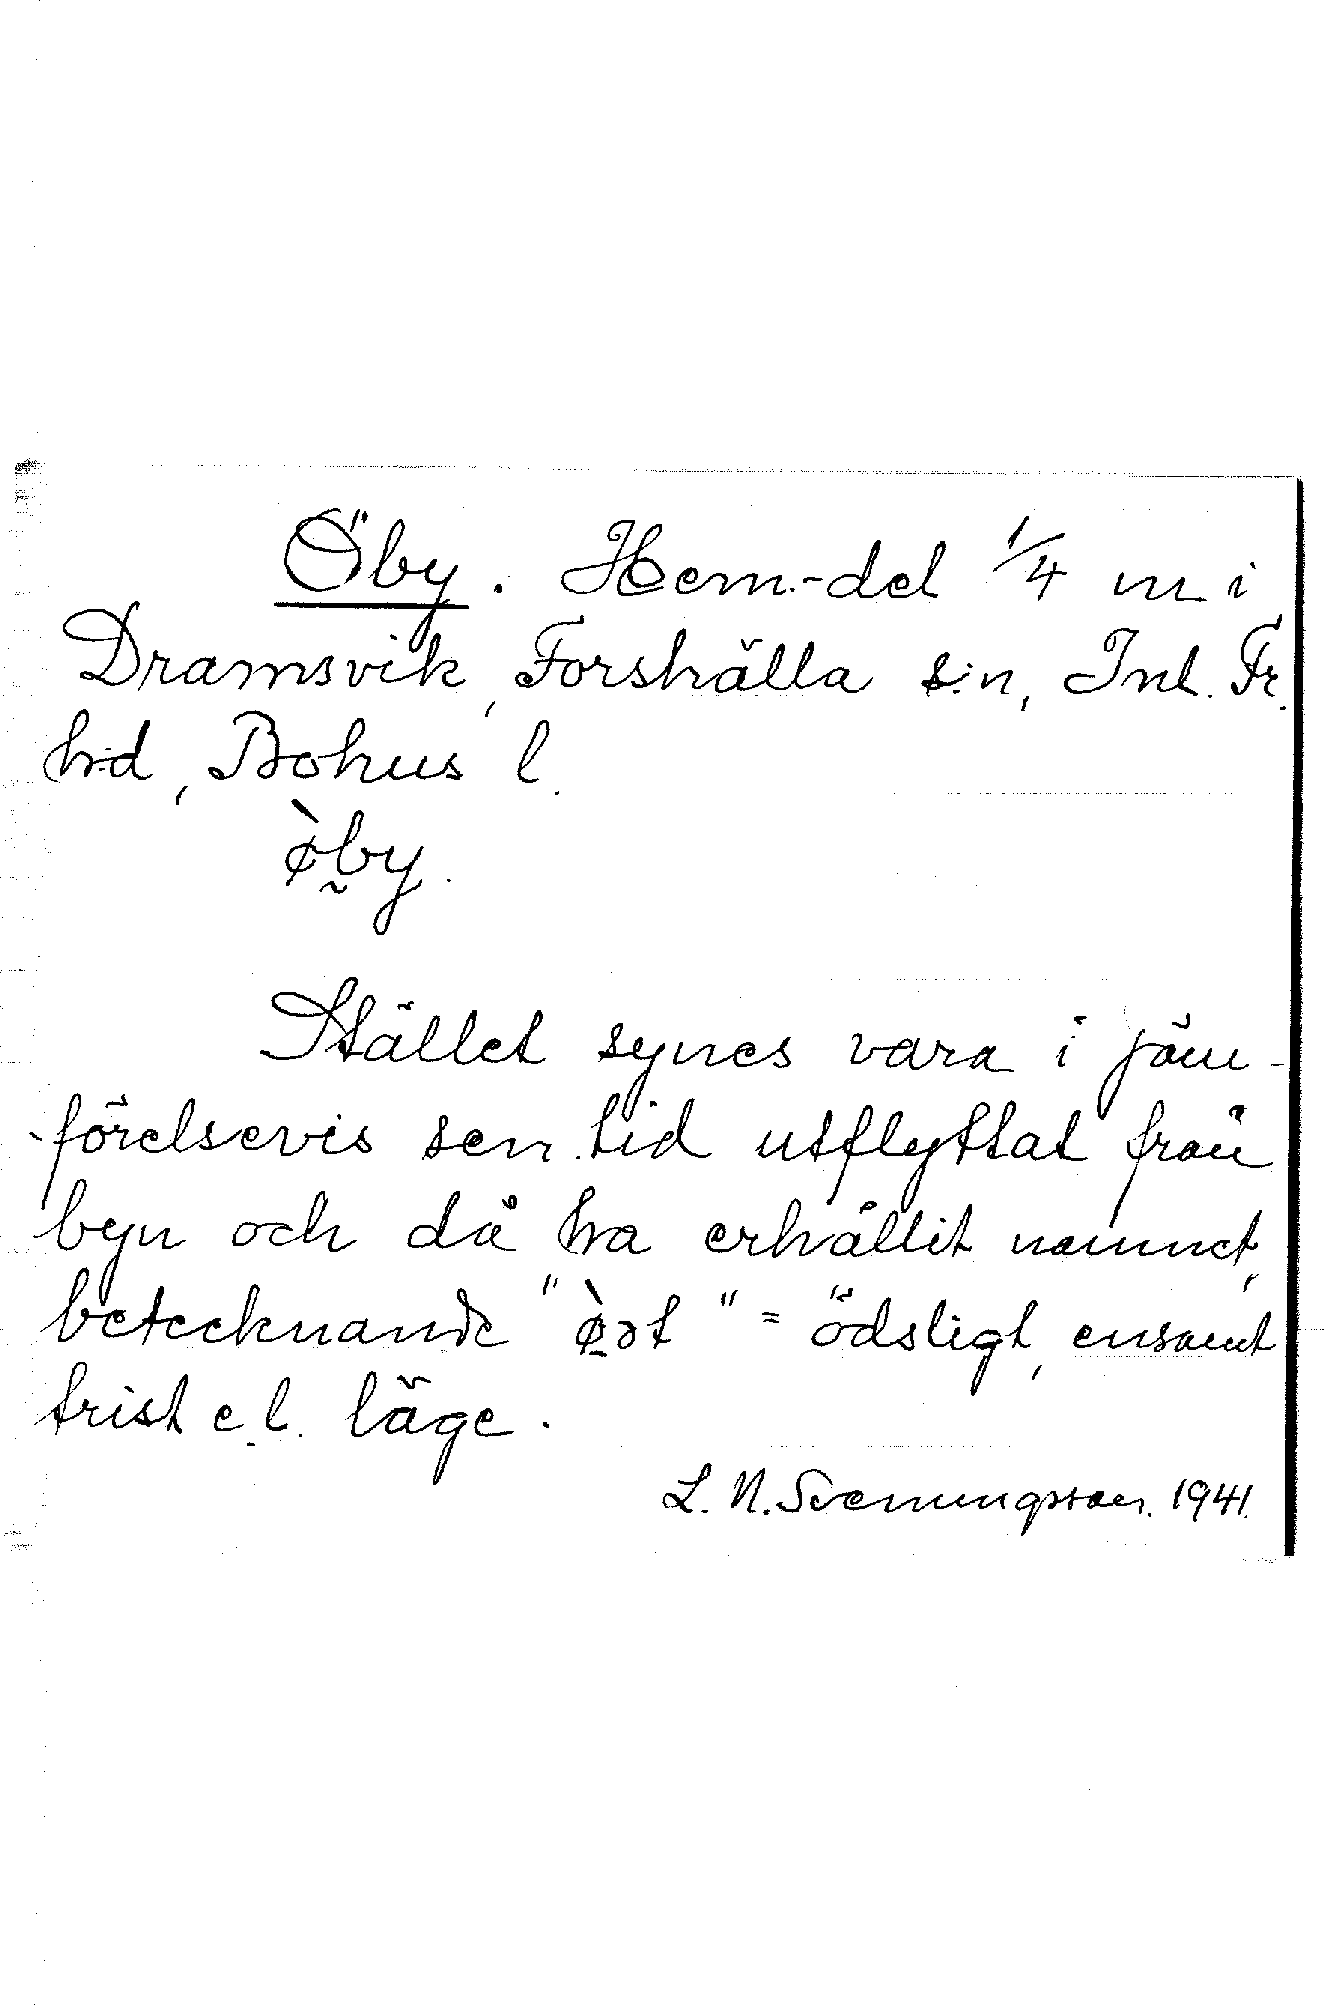 Öby. Hem.-del 1/4 m i
Dramsvik, Forshälla s:n, Inl. Fr.
h:d, Bohus l.
ø̀by.
Stället synes vara i jäm-
förelsevis sen tid utflyttat från
byn och då ha erhållit namnet,
betecknande "ø̀ət" = ödsligt, ensamt
trist e.l. läge.
L. N. Svenungsson. 1941.